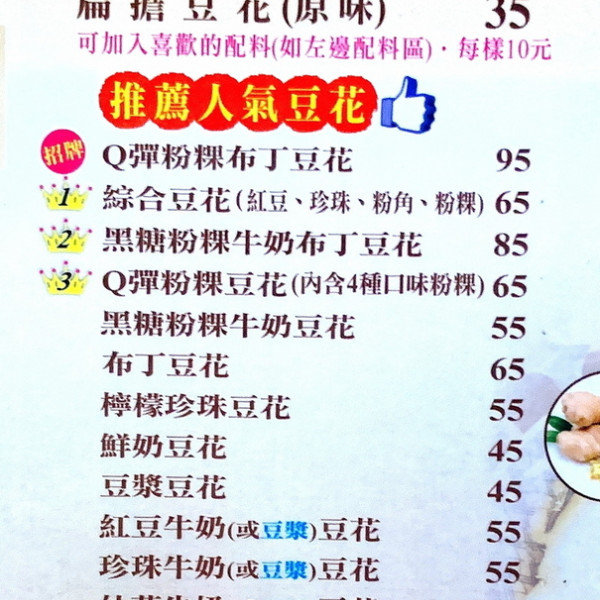 扁擔豆花(原味) 35
可加入喜歡的配料(如左邊配料區)·每樣10元
推薦人氣豆花
招牌 Q彈粉粿布丁豆花 95
1 綜合豆花(紅豆、珍珠、粉角、粉粿) 65
2 黑糖粉粿牛奶布丁豆花 85
3 Q彈粉粿豆花(內含4種口味粉粿) 65
黑糖粉粿牛奶豆花 55
布丁豆花 65
檸檬珍珠豆花 55
鮮奶豆花 45
豆漿豆花 45
紅豆牛奶(或豆漿)豆花 55
珍珠牛奶(或豆漿)豆花 55